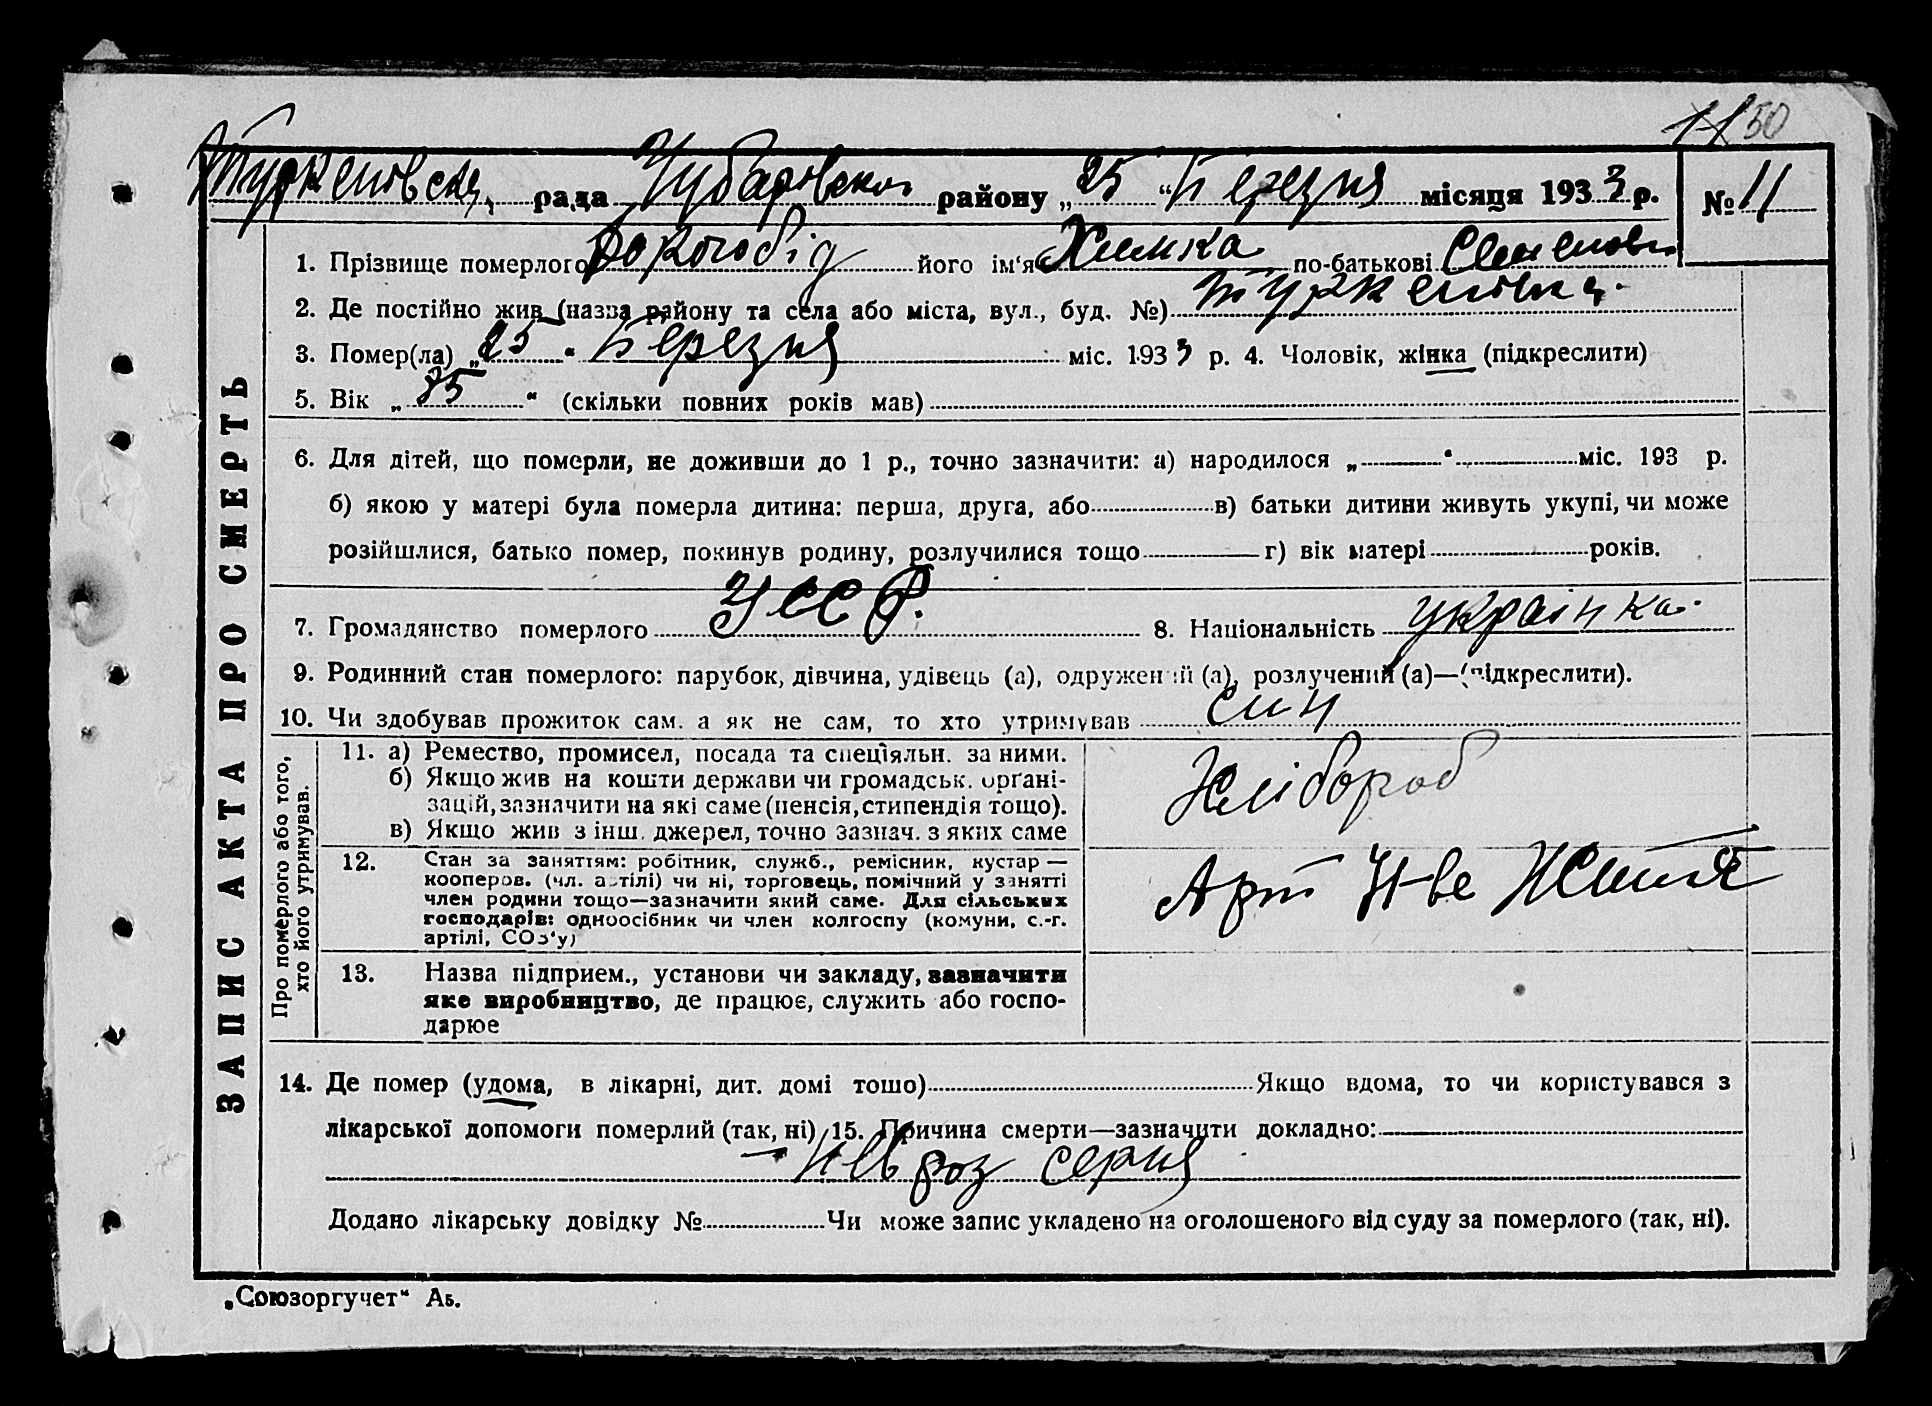 50
Туркеновська рада Чубаровськог району „25“ Березня місяця 1933 р. № 11
ЗАПИС АКТА ПРО СМЕРТЬ
1. Прізвище померлого його ім'я Химка по-батькові Семеновн
2. Де постійно жив (назва району та села або міста, вул., буд. №) Туркеновка
3. Помер(ла) „25“ Березня міс. 1933 р. 4. Чоловік, жінка (підкреслити)
5. Вік „85“ (скільки повних років мав)
6. Для дітей, що померли, не доживши до 1 р., точно зазначити: а) народилося „ “ міс. 193 р.
б) якою у матері була померла дитина: перша, друга, або в) батьки дитини живуть укупі, чи може
розійшлися, батько помер, покинув родину, розлучилися тощо г) вік матері років.
7. Громадянство померлого УССР. 8. Національність українка.
9. Родинний стан померлого: парубок, дівчина, удівець (а), одружений (а), розлучений (а)—(підкреслити).
10. Чи здобував прожиток сам, а як не сам, то хто утримував син
Про померлого або того, хто його утримував.
11. а) Ремество, промисел, посада та спеціяльн. за ними.
б) Якщо жив на кошти держави чи громадськ. органі-
зацій, зазначити на які саме (пенсія, стипендія тощо).
в) Якщо жив з інш. джерел, точно зазнач. з яких саме
Хлібороб
12. Стан за заняттям: робітник, служб., ремісник, кустар —
кооперов. (чл. артілі) чи ні, торговець, помічний у занятті
член родини тощо—зазначити який саме. Для сільських
господарів: одноосібник чи член колгоспу (комуни, с.-г.
артілі, СОЗ'у)
Арт Н-ве Життя
13. Назва підприєм., установи чи закладу, зазначити
яке виробництво, де працює, служить або госпо-
дарює
14. Де помер (удома, в лікарні, дит. домі тощо) Якщо вдома, то чи користувався з
лікарської допомоги померлий (так, ні) 15. Причина смерти—зазначити докладно:
Невроз серця
Додано лікарську довідку № Чи може запис укладено на оголошеного від суду за померлого (так, ні).
„Союзоргучет“ Аь.